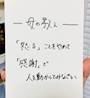 ― 母の教え ―
「怒る」ことをやめて
「感謝」で
人を動かしてみなさい